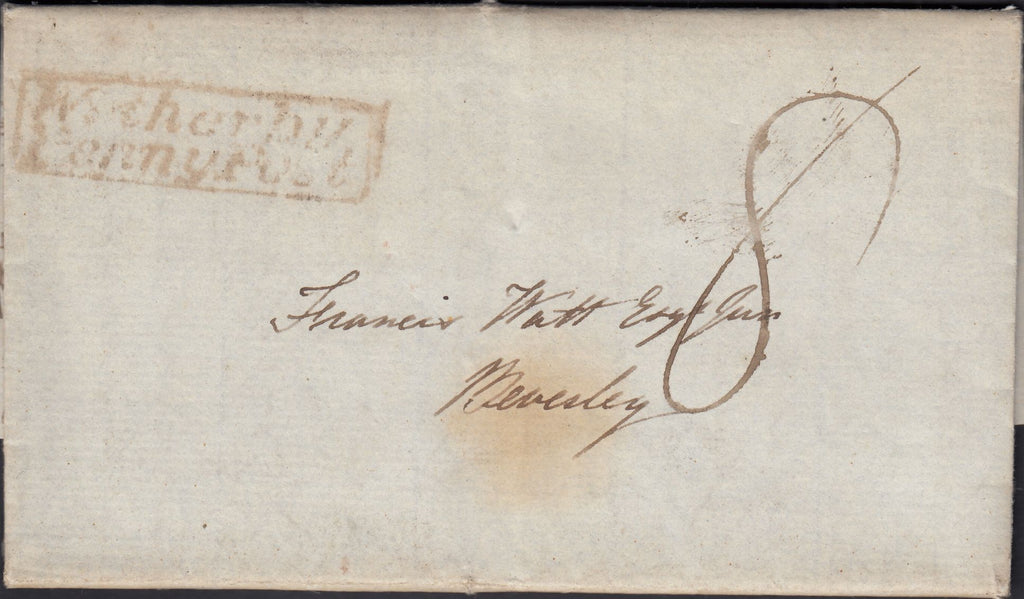 Wetherby
Penny Post
8
Francis Watt Esqr Jun
Beverley